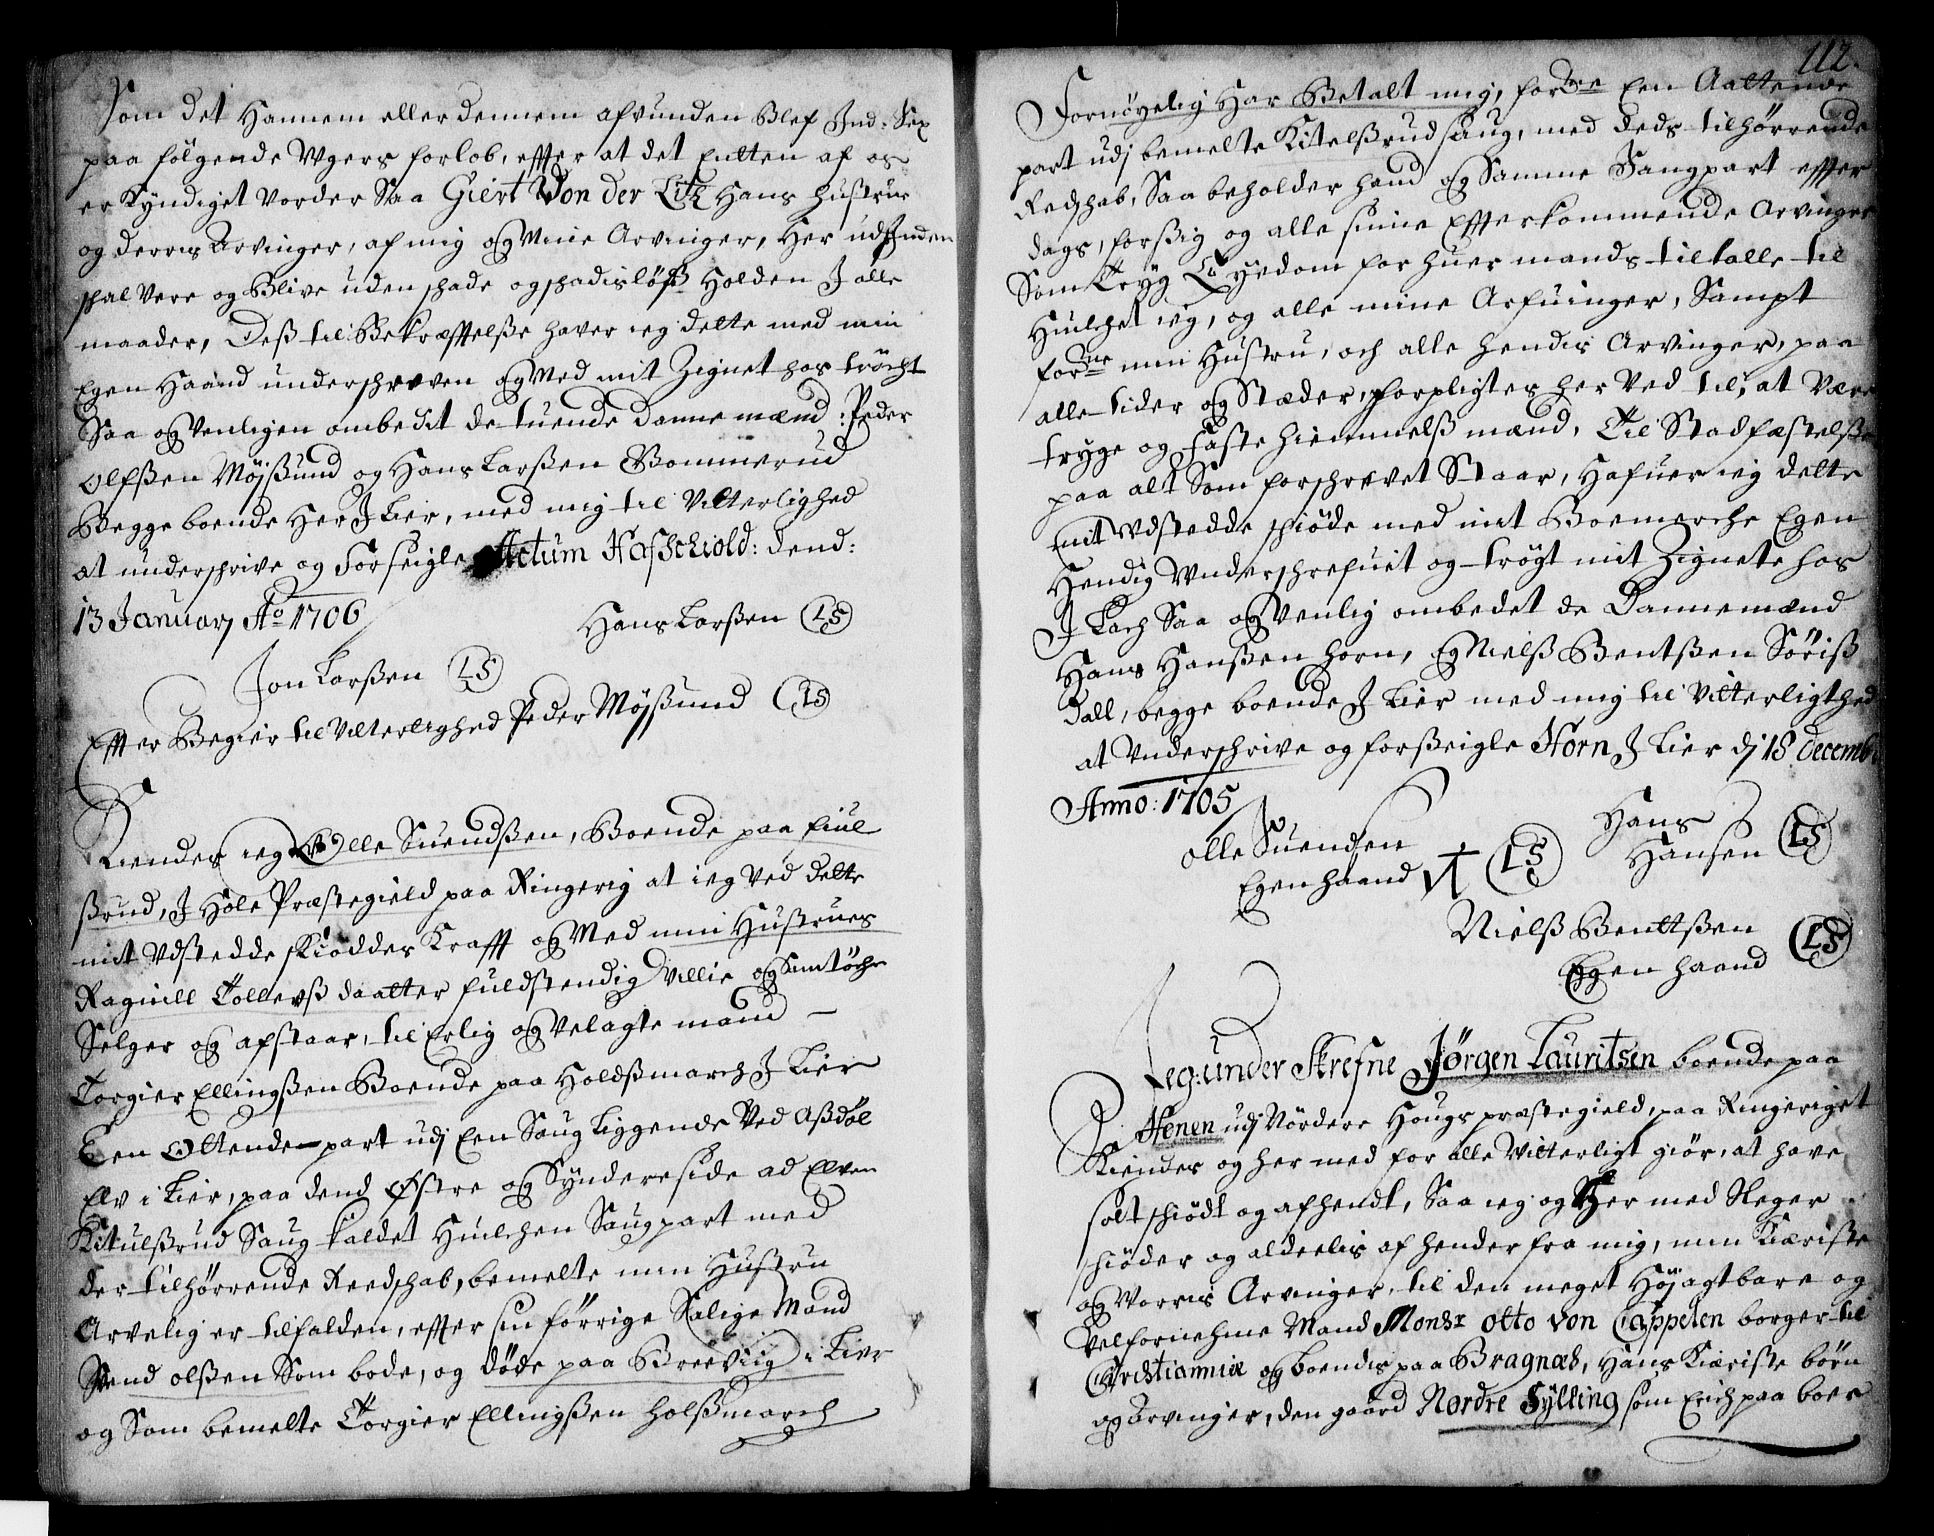 Som det Hannem eller dennem afvunden Blef Ind: Sex
paa følgende Ugers forlob, effter at det Entten af os
er Kyndiget vorder Saa Giert Von der Litz Hans Hustrue
og derris Arvinger, af mig og Mine Arvinger, Her udInden
schal vere og Blive uden schade og schadisløsß Holden J alle
maader, Deß til Bekræfftelße haver ieg dette med min
Egen Haand underschreven og Med mit Zignet hos tröcht
Saa og Venligen ombedit de tuende Danne mænd: Peder
Olfßen Møjsßund og Hans Larßen Bommerud
Begge boende Her J Lier, med mig til Vitterlighed
at underschrive og Forseigle Actum Hafschiold: dend:
13 January Ao 1706
Hans Larßen LS
Jon Larßen LS
Effter Begier til Vitterlighed Peder Møjsßund LS
Kiendes ieg Olle Suendßen, Boende paa Eiul
ßrud, J Hole Præstegield paa Ringerig at ieg ved dette
mit Udstedde Skiøddes Krafft og Med min Hustrues
Ragnill Tollevß daatter fuldstendig Villie og Samtöche
Selger og afstaar, til Erlig og Velagte mand –
Torgier Ellingßen Boende paa Holdßmarch J Lier
Een Ottende part udj Een Saug Liggende Ved Aßdøl
Elv i Lier, paa dend Østre og Syndere side ad Elven
Kitulßrud Saug kaldet Huilchen Saugpart med
der tilhørrende Reedschab, bemelte min Hustru
Arvelig er tilfalden, effter sin førrige Salige Mand
Svend olßen Som bode, og døde paa Breeviig i Lier
og Som bemelte Torgier Ellingßen Holßmarch
112.
Fornöyelig Har Betalt mig, for:ne Een Aattende
part udj bemelte Kitelßrud saug, med deds tilhørrende
Redschab, Saa beholder hand og Samme Saugpart effter
dags, forsßig og alle sinne Effterkommende Arvinger
Som Tryg Eyedom for huer mands tiltalle til
Huilchet ieg, og alle mine Arfuinger, Sampt
for:ne min Hustru, och alle hendis Arvinger, paa
alle tider og Stæder, forpligtes her Ved til, at Være
trygge og Faste Hiemmelß mænd, Til Stadfæstelße
paa alt Som forschrevet Staar, Hafuer ieg dette
mit Udstedde schiøde med mit Boemerche Egen
Hendig Underschrefuit og trögt mit Zignete hos
J Lach Saa og Venlig ombedet de Dannemænd
Hans Hanßen Horn, og Nielß Bentßen Söriß
dall, begge boende J Lier med mig til Vitterligthed
at Underschrive og forsßeigle Horn J Lier dj 18 decemb:
Anno: 1705
Olle Suenden
Egen haand LS
Hans
Hansen LS
Nielß Benttßen
Egen haand LS
Jeg: under Skrefne Jørgen Lauritsen boende paa
Henen udj Nördere Hougs præstegield, paa Ringeriget
Kiendes og her med for alle Vitterligt giör, at have
solt schiödt og afhendt, Saa ieg og Her med Selger
schiöder og aldeelis afhender fra mig, min Kieriste
og Vorris Arvinger, til den meget Höjagtbare og
Velfornehme Mand Monsr Otto von Cappelen borger til
Christianniæ og boendis paa Bragnæs, Hans Kieriste börn
og Arvinger, den gaard Nordre Sylling som Erich paa boer